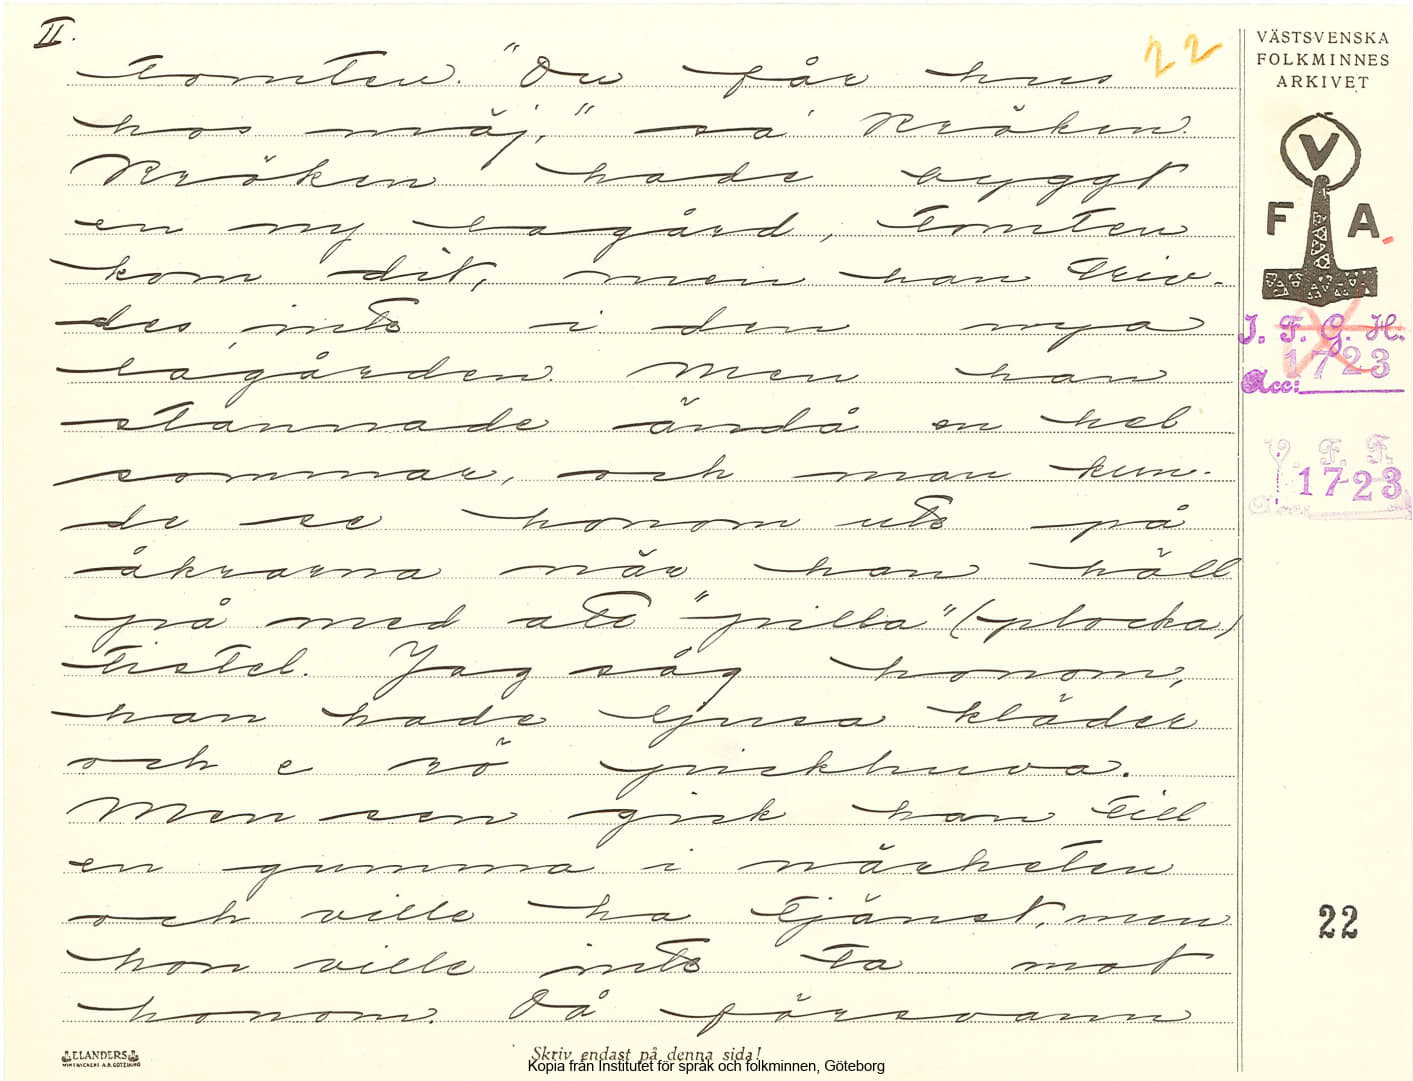 II.
22
tomten. "Du får hus
hos mäj," sa' Kröken.
Kröken hade byggt
en ny lagård, tomten
kom dit, men han triv-
des inte i den nya
lagården. Men han
stannade ändå en hel
sommar, och man kun-
de se honom ute på
åkrarna när han höll
på med att "pilla" (plocka)
tistel. Jag såg honom,
han hade ljusa kläder
och e rö pickhuva.
Men sen gick han till
en gumma i närheten
och ville ha tjänst, men
hon ville inte ta mot
honom. Då försvann
VÄSTSVENSKA
FOLKMINNES
ARKIVET
V
F A
I. F. G. H.
1723
Acc:
V. F. F.
1723
22
ELANDERS
Skriv endast på denna sida!
Kopia från Institutet för språk och folkminnen, Göteborg